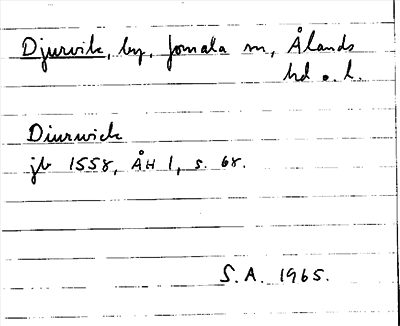 Djurvik, by, Jomala sn, Ålands
hd o. l.
Diurwick
jb 1558, ÅH 1, s. 68.
S.A. 1965.